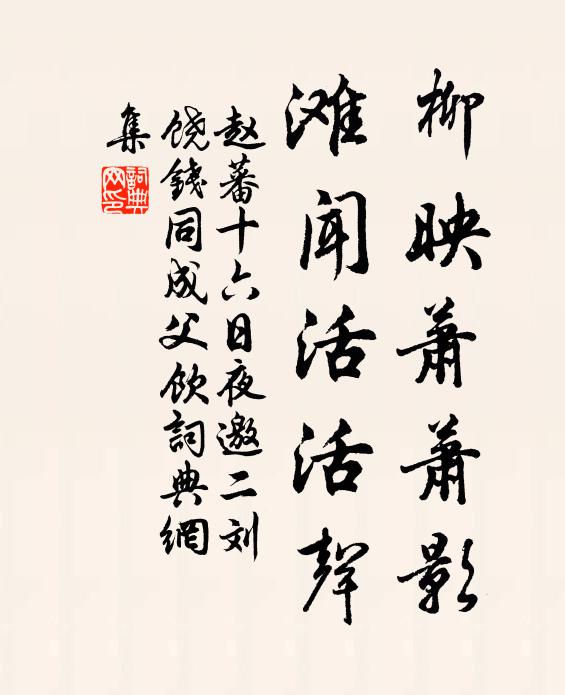 柳映萧萧影
滩闻活活声
赵蕃十六日夜邀二刘
饶钱同成父饮詞典網
集
詞典
网印